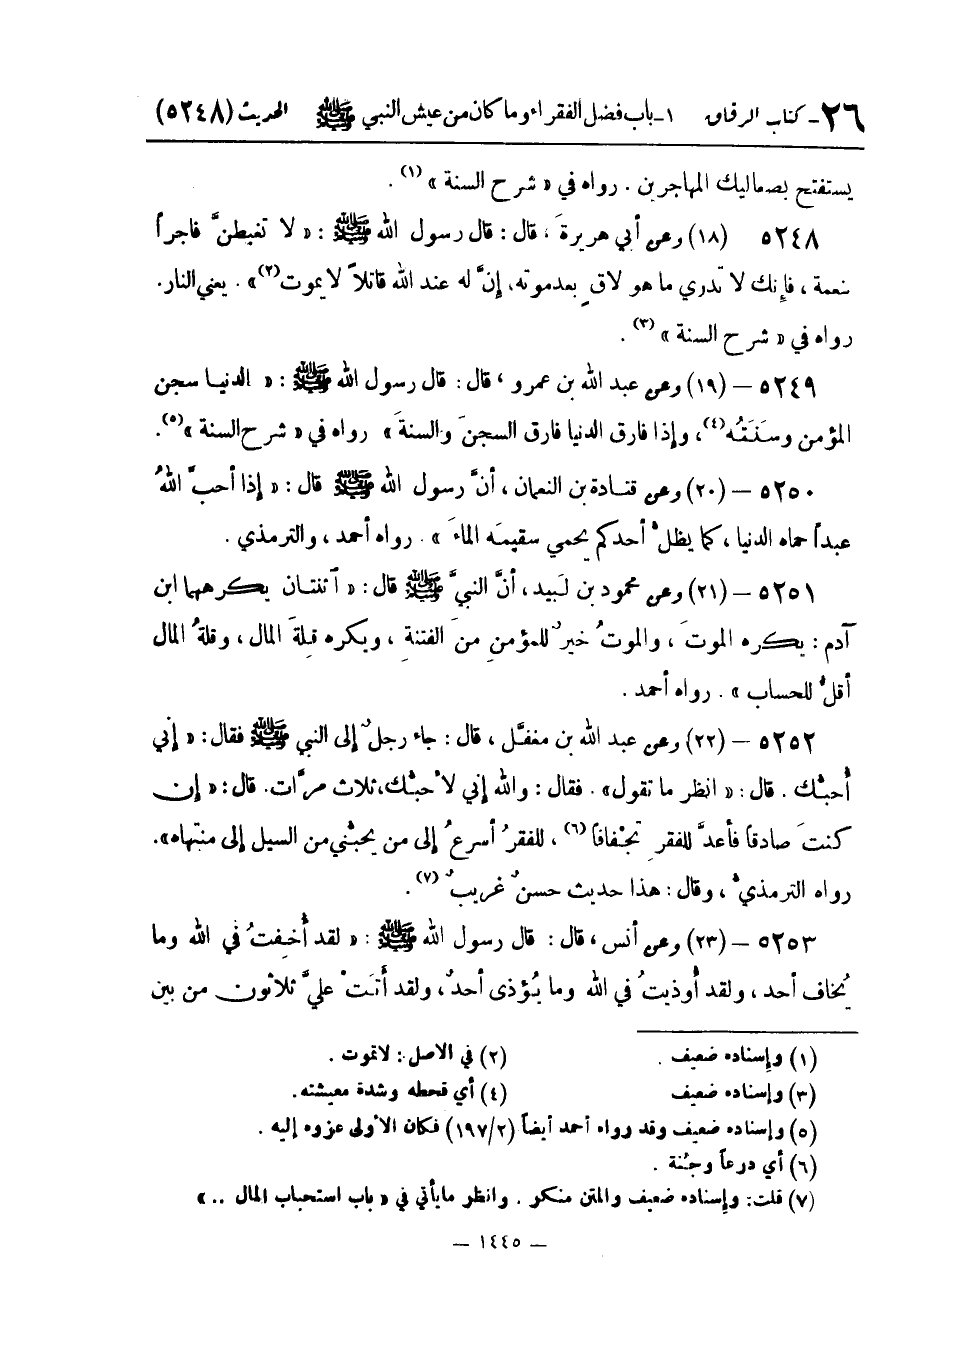 ٢٦ - كتاب الرقاق ١ - باب فضل الفقراء وما كان من عيش النبي ﷺ الحديث (٥٢٤٨)
يستفتح بصعاليك المهاجرين . رواه في « شرح السنة » (١) .
٥٢٤٨ (١٨) وعن أبي هريرةَ ، قال : قال رسول الله ﷺ : « لا تغبطنَّ فاجراً
بنعمة ، فإنك لا تدري ما هو لاقٍ بعد موته، إنَّ له عند الله قاتلاً لا يموت(٢)» . يعني النار.
رواه في « شرح السنة » (٣) .
٥٢٤٩ – (١٩) وعن عبد الله بن عمرو ، قال : قال رسول الله ﷺ : « الدنيا سجن
المؤمن وسَنَتُه(٤)، وإذا فارق الدنيا فارق السجنَ والسنةَ » رواه في « شرح السنة »(٥).
٥٢٥٠ – (٢٠) وعن قتادة بن النعمان ، أنَّ رسول الله ﷺ قال : « إذا أحبَّ اللهُ
عبداً حماه الدنيا ، كما يظلُّ أحدكم يحمي سقيمَه الماءَ » . رواه أحمد ، والترمذي .
٥٢٥١ – (٢١) وعن محمود بن لَبيد، أنَّ النبيَّ ﷺ قال : « اثنتان يكرههما ابن
آدم : يكره الموتَ ، والموتُ خيرٌ للمؤمنِ منَ الفتنةِ ، ويكره قِلةَ المال ، وقلةُ المال
أقلُّ للحساب » . رواه أحمد .
٥٢٥٢ – (٢٢) وعن عبد الله بن مغفَّل ، قال : جاء رجلٌ إلى النبي ﷺ فقال : « إني
أُحبُّك . قال : « انظر ما تقول» . فقال : والله إني لأحبُّك، ثلاث مرَّات. قال : « إن
كنتَ صادقاً فأعدَّ للفقرِ تِجْفافاً (٦) ، للفقرُ أسرعُ إلى من يحبُّني من السيل إلى منتهاه».
رواه الترمذيُّ ، وقال : هذا حديث حسنٌ غريبٌ (٧) .
٥٢٥٣ – (٢٣) وعن أنس ، قال : قال رسول الله ﷺ : « لقد أُخِفتُ في الله وما
يُخاف أحد ، ولقد أُوذيتُ في الله وما يُؤذى أحدٌ، ولقد أَتَتْ عليَّ ثلاثون من بين
(١) وإسناده ضعيف . (٢) في الاصل : لاتموت .
(٣) وإسناده ضعيف (٤) أي قحطه وشدة معيشته.
(٥) وإسناده ضعيف وقد رواه أحمد أيضاً (١٩٧/٢) فكان الأولى عزوه إليه .
(٦) أي درعاً وجُنة .
(٧) قلت: وإسناده ضعيف والمتن منكر . وانظر مايأتي في « باب استحباب المال .. »
– ١٤٤٥ –